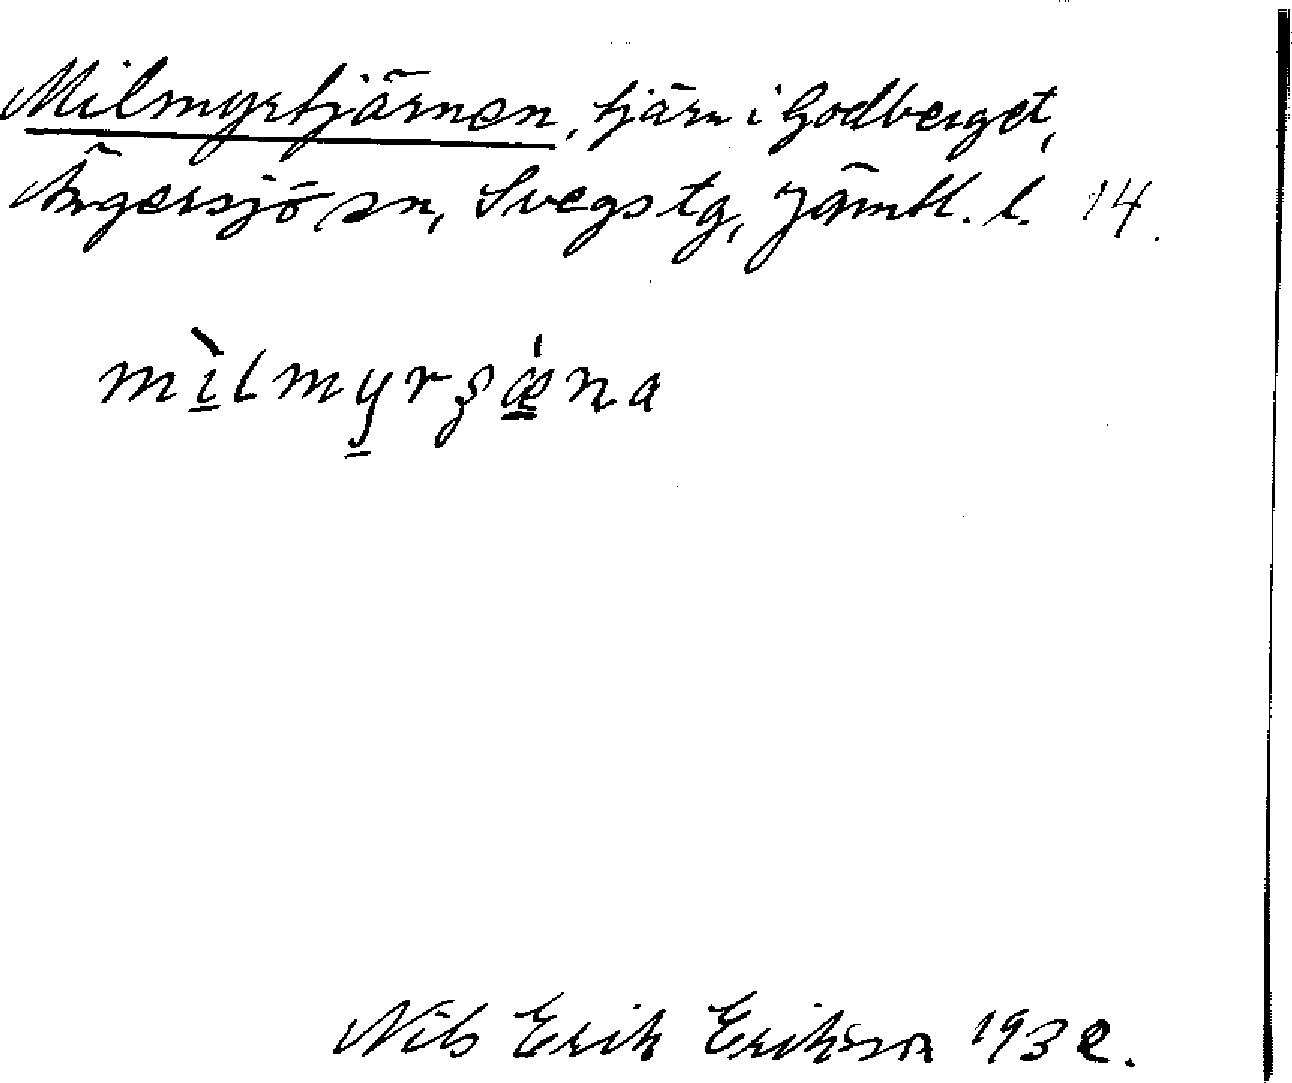 Milmyrtjärnen, tjärn i Godberget,
Ängersjö sn, Svegs tg, Jämtl. l. 14.
mìlmyrʂǽna
Nils Erik Erikson 1932.